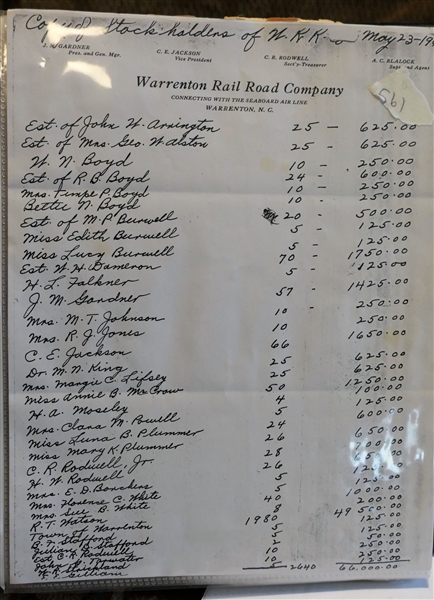 Copy of Stockholders of W.R.R. Co May 23-19
J. M. GARDNER
Pres. and Gen. Mgr.
C. E. JACKSON
Vice President
C. R. RODWELL
Sect'y-Treasurer
A. C. BLALOCK
Supt. Agent
561
Warrenton Rail Road Company
CONNECTING WITH THE SEABOARD AIR LINE
WARRENTON, N. C.
Est. of John W. Arrington 25 - 625.00
Est. of Mrs. Geo. W. Alston 25 - 625.00
W. N. Boyd 10 - 250.00
Est. of R. B. Boyd 24 - 600.00
Mrs. Tempe P. Boyd 10 - 250.00
Bettie N. Boyd 10 - 250.00
Est. of M. P. Burwell 20 - 500.00
Miss Edith Burwell 5 - 125.00
Miss Lucy Burwell 5 - 125.00
Est. W. H. Dameron 70 - 1750.00
H. L. Falkner 5 - 125.00
J. M. Gardner 57 - 1425.00
Mrs. M. T. Johnson 10 - 250.00
Mrs. R. J. Jones 10 250.00
C. E. Jackson 66 1650.00
Dr. M. N. King 25 625.00
Mrs. Margie C. Lifsey 25 625.00
Miss Annie B. McCraw 50 1250.00
H. A. Moseley 4 100.00
Mrs. Clara M. Powell 5 125.00
Miss Luna B. Plummer 24 600.00
Miss Mary K. Plummer 26 650.00
C. R. Rodwell, Jr. 28 700.00
H. W. Rodwell 26 650.00
Mrs. E. D. 5 125.00
Mrs. Florence C. White 5 125.00
Mrs. Sue B. White 40 1000.00
R. T. Watson 8 200.00
Town of Warrenton 1980 49500.00
B. F. Stafford 5 125.00
William B. Stafford 5 125.00
Est. C. A. Rodwell 2 50.00
John 10 250.00
W. R. Strickland 10 250.00
Gilliam 5 125.00
2640 66,000.00